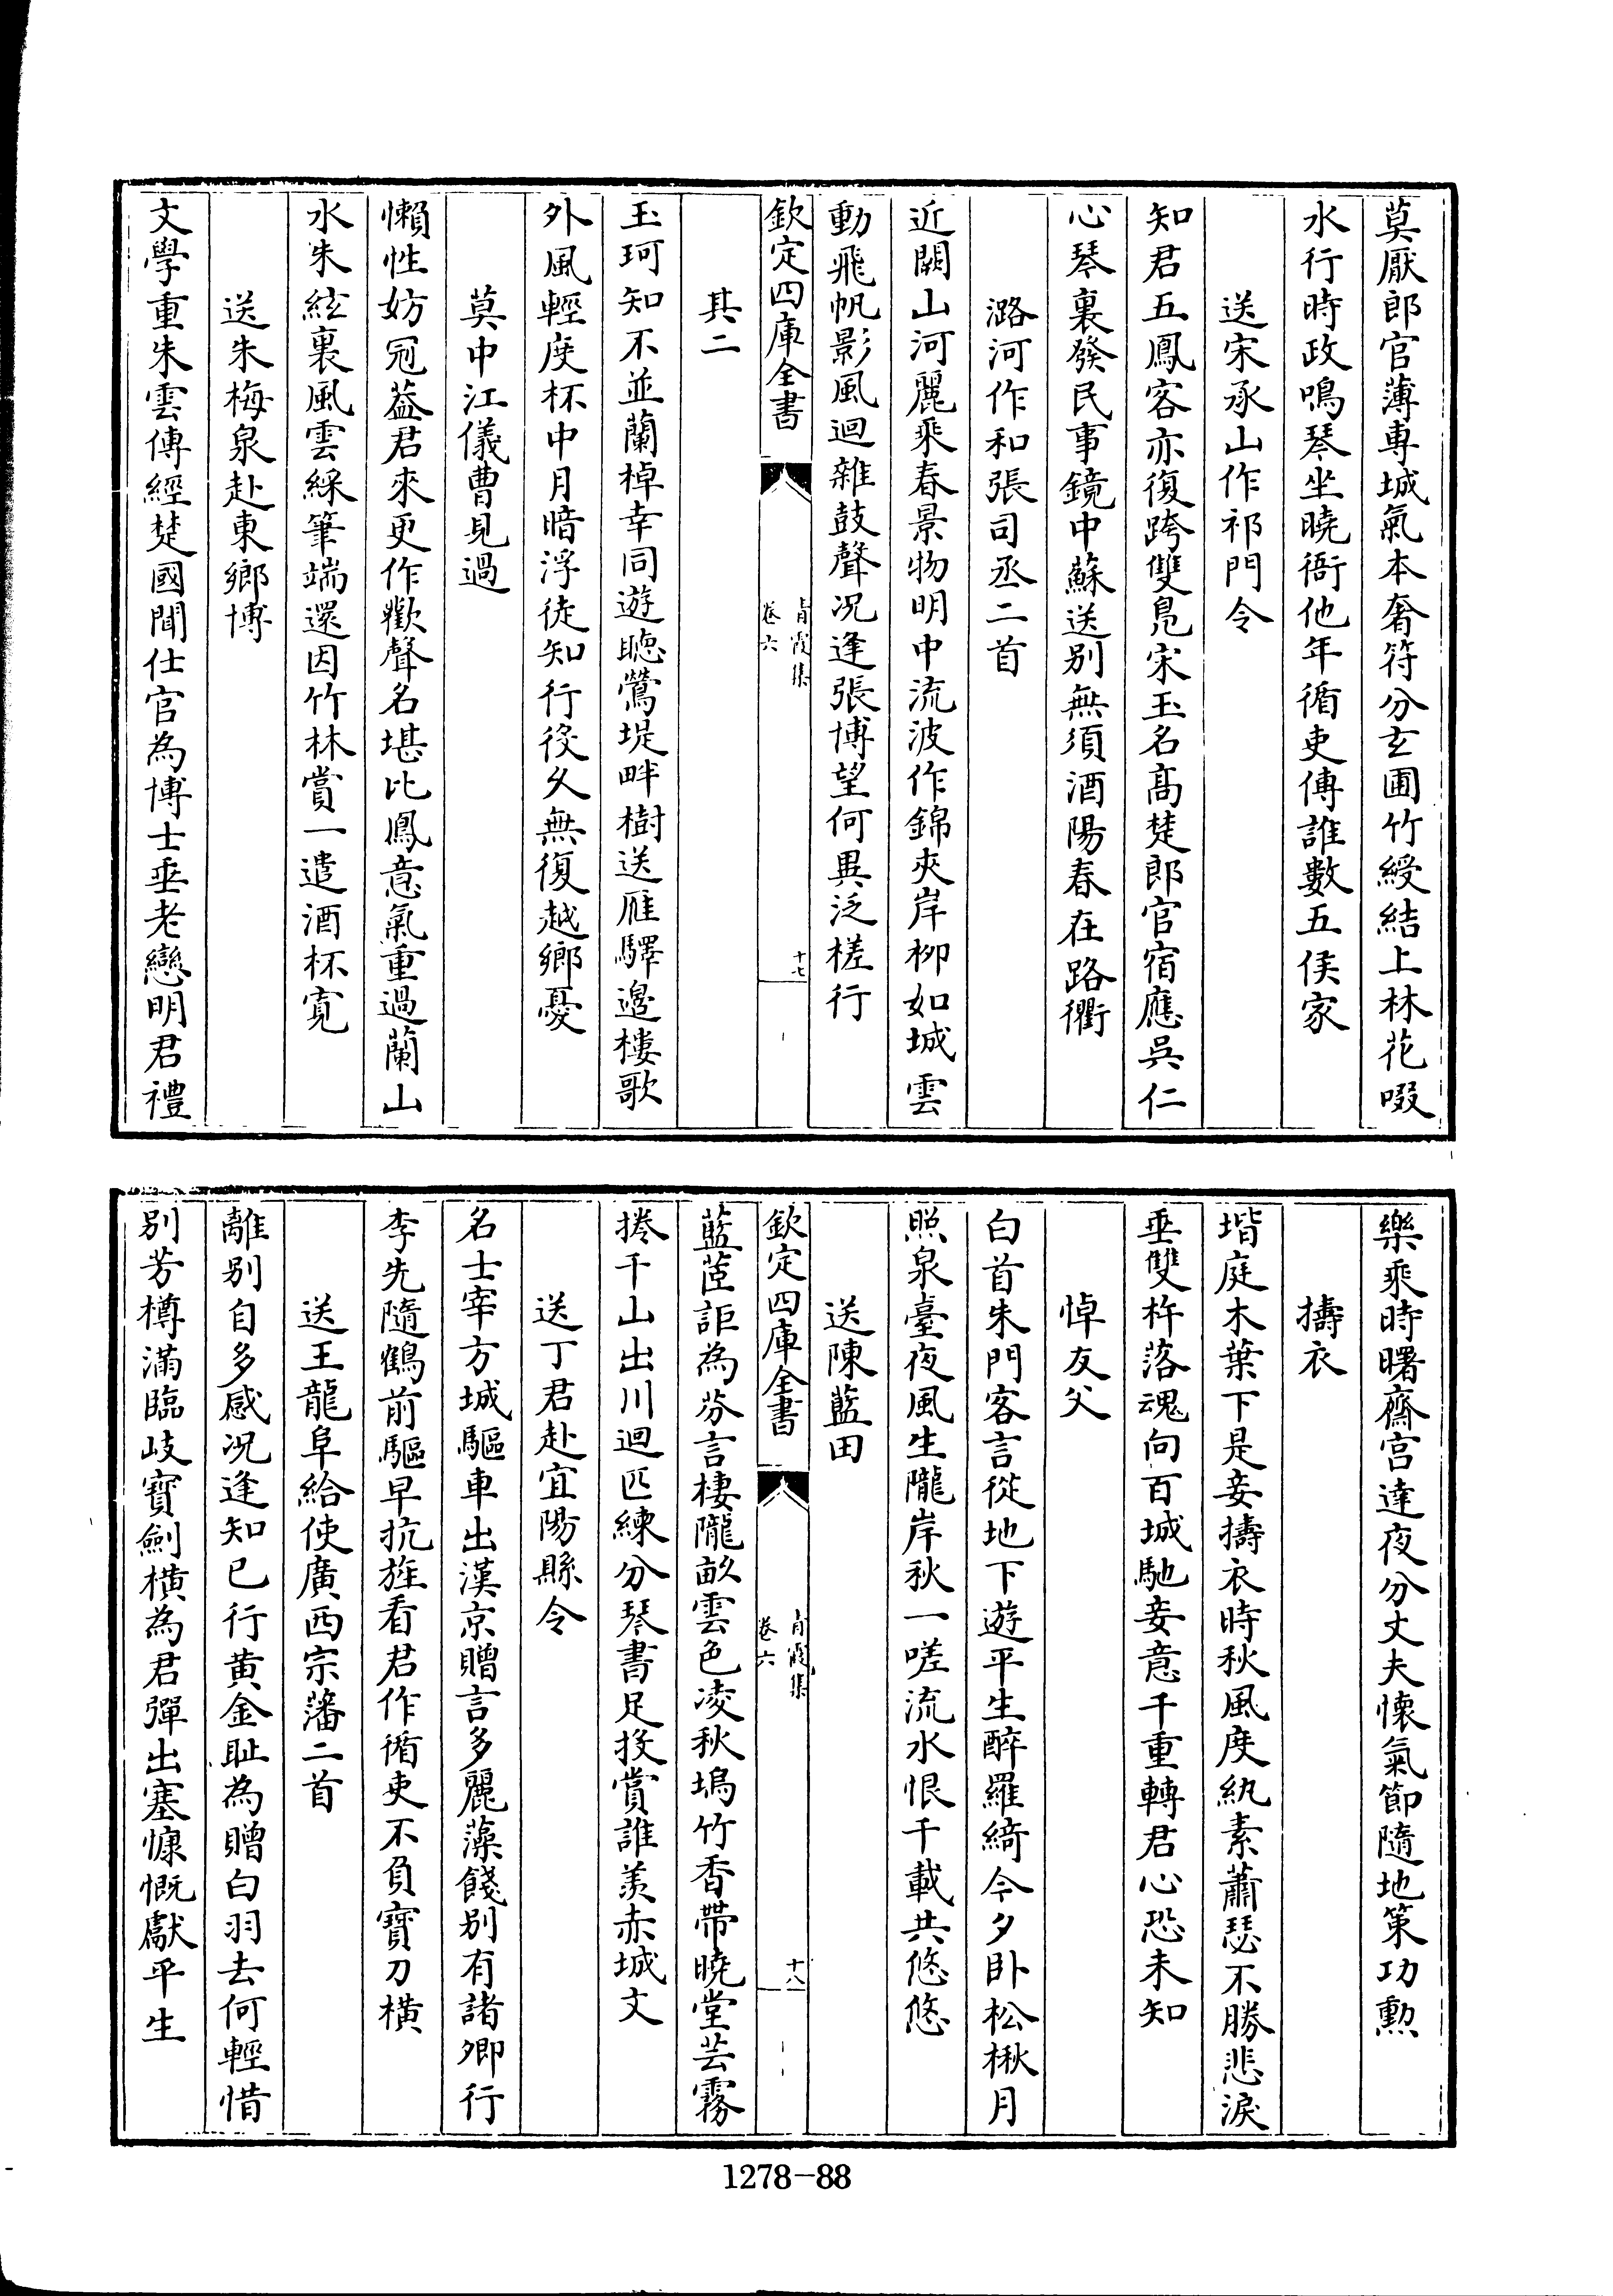 莫厭郎官薄專城氣本奢符分玄圃竹綬結上林花啜
水行時政鳴琴坐曉衙他年循吏傳誰數五侯家
送宋承山作祁門令
知君五鳳客亦復跨雙鳧宋玉名髙楚郎官宿應吳仁
心琴裏發民事鏡中蘇送别無須酒陽春在路衢
潞河作和張司丞二首
近闕山河麗乘春景物明中流波作錦夾岸栁如城雲
動飛帆影風迴雜鼓聲况逢張博望何異泛槎行
欽定四庫全書
青霞集
卷六
十七
其二
玉珂知不並蘭棹幸同遊聼鶯堤畔樹送雁驛邊樓歌
外風輕度杯中月暗浮徒知行役久無復越鄉憂
莫中江儀曹見過
懶性妨冠葢君來更作歡聲名堪比鳳意氣重過蘭山
水朱絃裏風雲綵筆端還因竹林賞一遣酒杯寛
送朱梅泉赴東鄉博
文學重朱雲傳經楚國聞仕官為博士垂老戀明君禮
樂乘時曙齋宫達夜分丈夫懷氣節隨地策功勲
擣衣
堦庭木葉下是妾擣衣時秋風度紈素蕭瑟不勝悲淚
垂雙杵落魂向百城馳妾意千重轉君心恐未知
悼友父
白首朱門客言從地下遊平生醉羅綺今夕卧松楸月
照泉臺夜風生隴岸秋一嗟流水恨千載共悠悠
送陳藍田
欽定四庫全書
青霞集
卷六
十八
藍茝詎為芬言棲隴畝雲色凌秋塢竹香帶曉堂芸霧
捲千山出川迴匹練分琴書足投賞誰羨赤城文
送丁君赴宜陽縣令
名士宰方城驅車出漢京贈言多麗藻餞别有諸卿行
李先隨鶴前驅早抗旌看君作循吏不負寳刀橫
送王龍阜給使廣西宗藩二首
離别自多感况逢知已行黄金耻為贈白羽去何輕惜
别芳樽滿臨岐寳劍橫為君彈出塞慷慨獻平生
1278-88